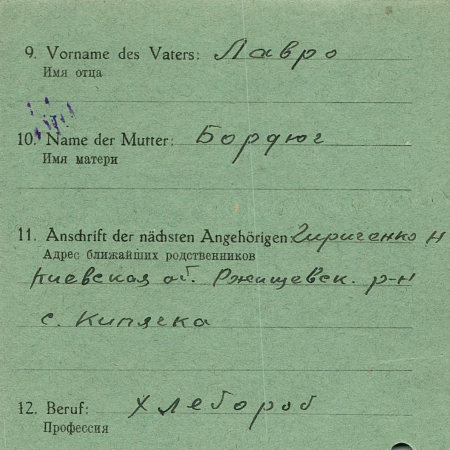 9. Vorname des Vaters: Лавро
Имя отца
10. Name der Mutter: Бордюг
Имя матери
11. Anschrift der nächsten Angehörigen: Гириченко Н
Адрес ближайших родственников
Киевская об. Ржищевск. р-н
с. Кипячка
12. Beruf: Хлебороб
Профессия